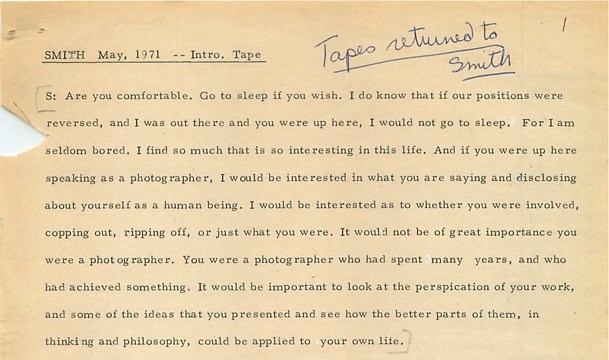 1
Tapes returned to
Smith
SMITH May, 1971 -- Intro. Tape
[S: Are you comfortable. Go to sleep if you wish. I do know that if our positions were
reversed, and I was out there and you were up here, I would not go to sleep. For I am
seldom bored. I find so much that is so interesting in this life. And if you were up here
speaking as a photographer, I would be interested in what you are saying and disclosing
about yourself as a human being. I would be interested as to whether you were involved,
copping out, ripping off, or just what you were. It would not be of great importance you
were a photographer. You were a photographer who had spent many years, and who
had achieved something. It would be important to look at the perspication of your work,
and some of the ideas that you presented and see how the better parts of them, in
thinking and philosophy, could be applied to your own life.]